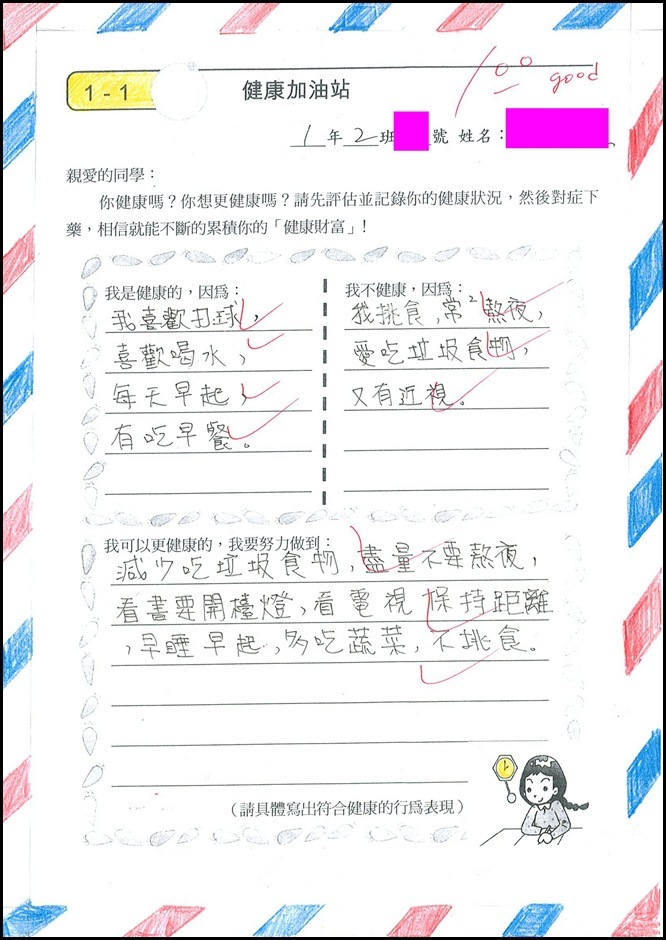 good
1-1
健康加油站
1年2班 號 姓名：
親愛的同學：
你健康嗎？你想更健康嗎？請先評估並記錄你的健康狀況，然後對症下
藥，相信就能不斷的累積你的「健康財富」！
我是健康的，因爲：
我喜歡打球，
喜歡喝水，
每天早起，
有吃早餐。
我不健康，因爲：
我挑食，常²熬夜，
愛吃垃圾食物，
又有近視。
我可以更健康的，我要努力做到：
減少吃垃圾食物，盡量不要熬夜，
看書要開檯燈，看電視保持距離
，早睡早起，多吃蔬菜，不挑食。
（請具體寫出符合健康的行爲表現）